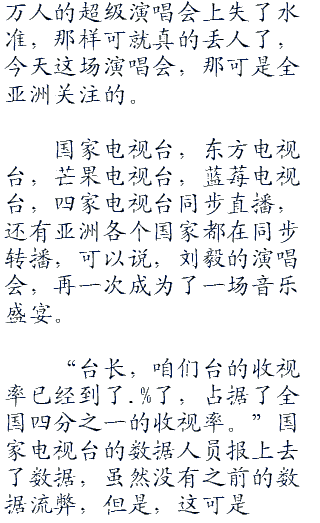 万人的超级演唱会上失了水
准，那样可就真的丢人了，
今天这场演唱会，那可是全
亚洲关注的。
国家电视台，东方电视
台，芒果电视台，蓝莓电视
台，四家电视台同步直播，
还有亚洲各个国家都在同步
转播，可以说，刘毅的演唱
会，再一次成为了一场音乐
盛宴。
“台长，咱们台的收视
率已经到了.%了，占据了全
国四分之一的收视率。”国
家电视台的数据人员报上去
了数据，虽然没有之前的数
据流弊，但是，这可是